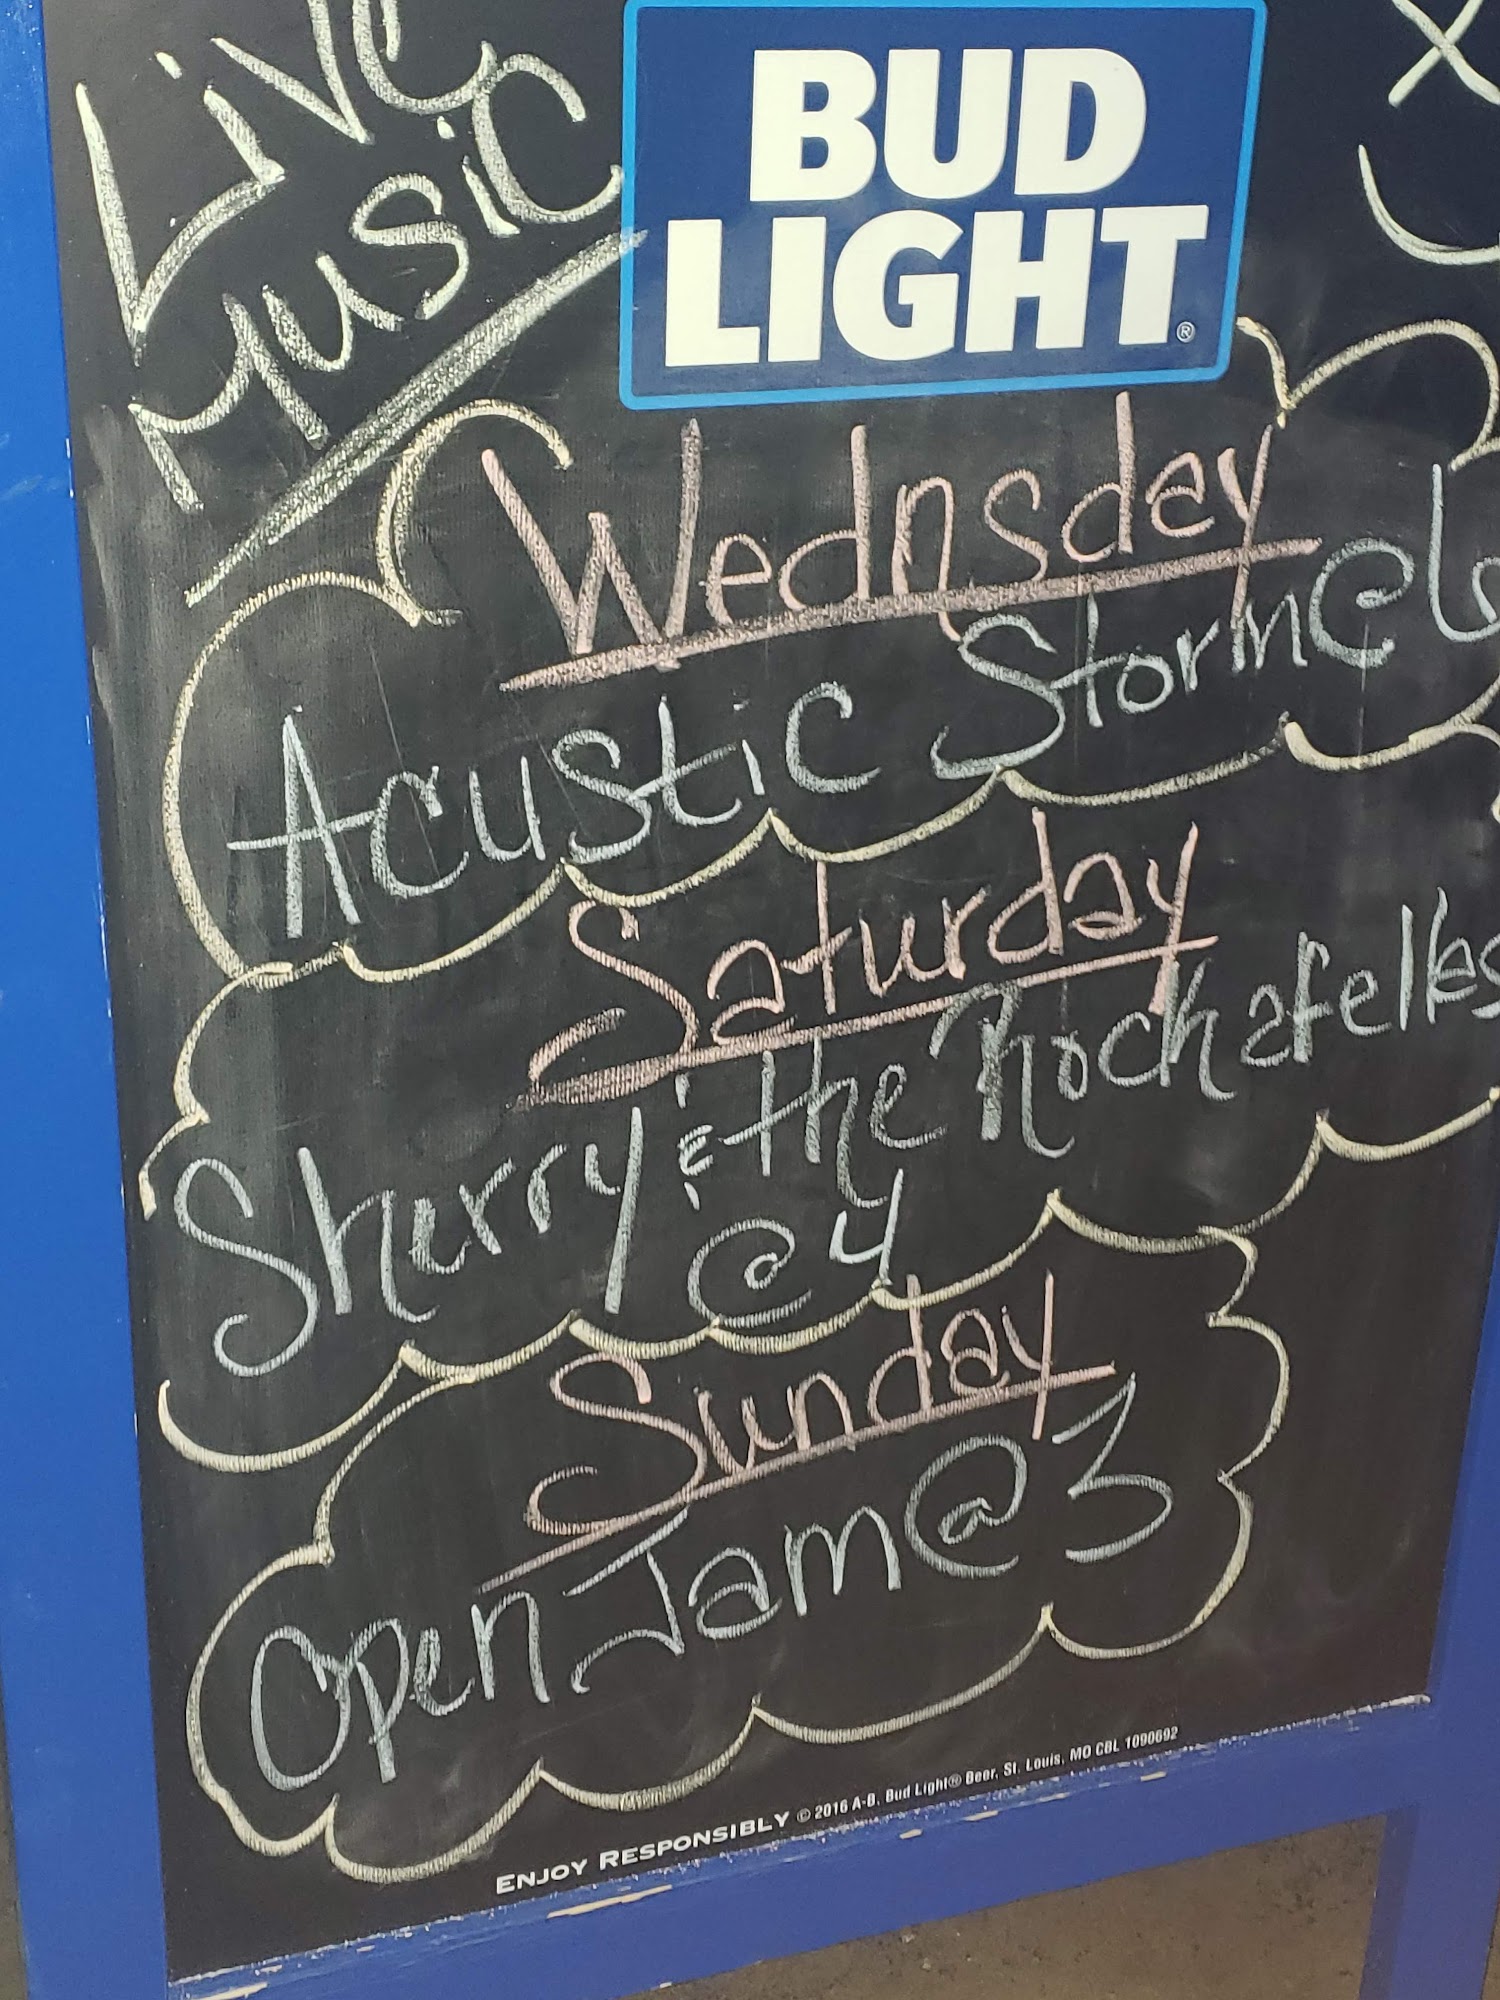 Live
Music
BUD
LIGHT®
Wednsday
Acustic Storm @ 6
Saturday
Sherry & the Rockafellas
@ 4
Sunday
Open Jam @ 3
ENJOY RESPONSIBLY © 2016 A-B, Bud Light® Beer, St. Louis, MO CBL 1090692